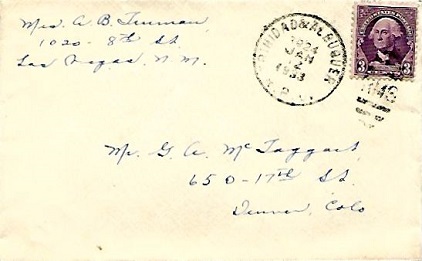 Mrs. A. B. Truman
1020 - 8th St.
Las Vegas, N. M.
TRINIDAD & ALBUQUER
JAN
2
1933
R.P.O.
3 3
Mr. G. A. McTaggart
650 - 17th St.
Denver, Colo